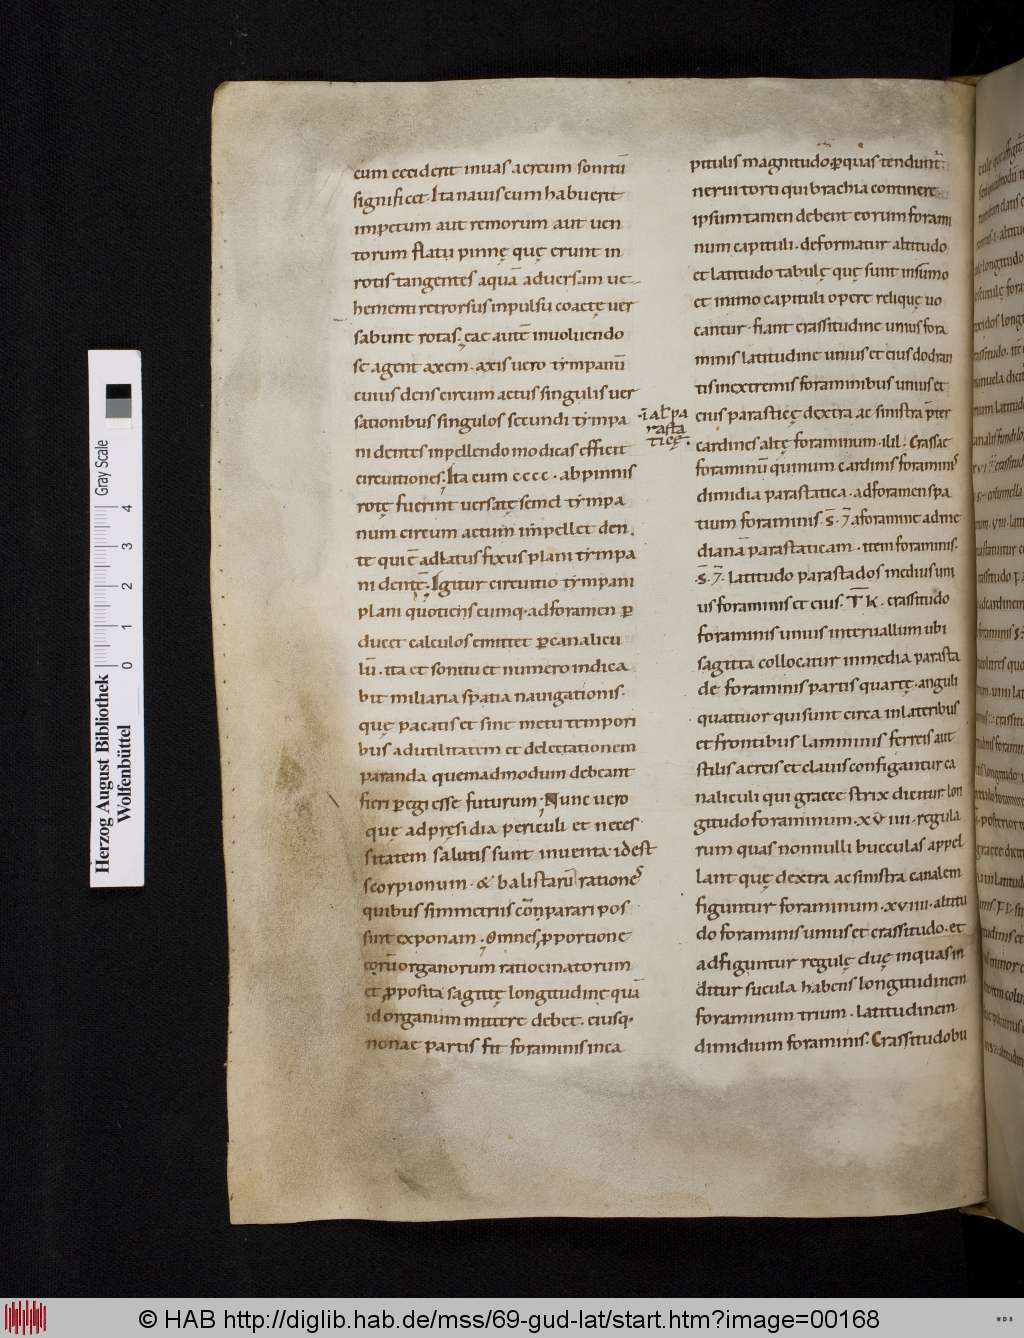 cum ceciderit inuas aereum sonitū
significet. Ita nauis cum habuerit
impetum aut remorum aut uen
torum flatu pinnę quę erunt in
rotis tangentes aquā aduersam ue
hementi retrorsus inpulsu coactę uer
sabunt rotas. eae autē inuoluendo
se agent axem. axis uero tympanū
cuius dens circum actus singulis uer
sationibus singulos secundi tympa
ni dentes inpellendo modicas efficit
circuitiones. Ita cum cccc. abpinnis
rotę fuerint uersatę semel tympa
num circum actum impellet den
te qui ē adlatus fixus plani tympa
ni dentē. Igitur circuitio tympani
plani quotienscumq. adforamen ꝑ
ducet calculos emittet ꝑ canalicu
lū. ita et sonitu et numero indica
bit miliaria spatia nauigationis.
quę pacatis et sine metu tempori
bus adutilitatem et delectationem
paranda quemadmodum debeant
fieri ꝑegi esse futurum; Nunc uero
quę adpręsidia periculi et neces
sitatem salutis sunt inuenta. idest
scorpionum. & balistarū rationes
quibus simmetriis cōnparari pos
sint exponam. Omnes ꝓportione
eorū organorum ratiocinatorum
et ꝓposita sagittę longitudine quā
id organum mittere debet. eiusq.
nonae partis fit foraminis inca
.i. al. pa
rasta
ticę.
pitulis magnitudo ꝑ quas tenduntʳ
nerui torti qui brachia continere
ipsum tamen debent eorum forami
num capituli. deformatur altitudo
et latitudo tabulę quę sunt insūmo
et inimo capituli opere reliquę uo
cantur. fiant crassitudine unius fora
minis latitudine unius et eius dodran
tis inextremis foraminibus unius et
eius parasticę dextra ac sinistra p̄ter
cardines altę foraminum. iiii. Crassae
foraminū quinum cardinis foraminis
dimidia parastatica. adforamen spa
tium foraminis. s̄. 7̄ aforamine ad me
dianā parastaticam. item foraminis.
.s̄. 7̄. Latitudo parastados medius uni
us foraminis et eius. T̄ K. crassitudo
foraminis unius interuallum ubi
sagitta collocatur inmedia parasta
de foraminis partis quartę. anguli
quattuor qui sunt circa inlateribus
et frontibus lamminis ferreis aut
stilis aereis et clauis configantur ca
naliculi qui graece strix dicitur lon
gitudo foraminum. xviiii. regula
rum quas nonnulli bucculas appel
lant quę dextra ac sinistra canalem
figuntur foraminum. xviiii. altitu
do foraminis unius et crassitudo. et
adfiguntur regulę duę inquas in
ditur sucula habens longitudinem
foraminum trium. latitudinem
dimidium foraminis. Crassitudo bu
Herzog August Bibliothek
Wolfenbüttel
Gray Scale
0 1 2 3 4
© HAB http://diglib.hab.de/mss/69-gud-lat/start.htm?image=00168